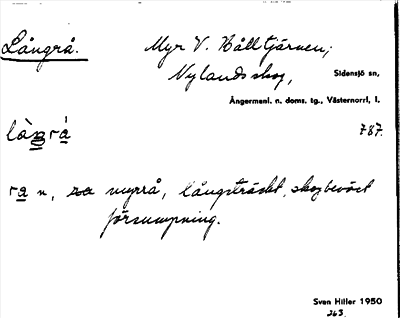 Långrå. Myr V. Hålltjärnen,
Nylandsskog, Sidensjö sn,
Ångermanl. n. doms. tg., Västernorrl. l.
787.
ra n, myrrå, långsträckt, skogbeväxt
försumpning.
Sven Hiller 1950
263.